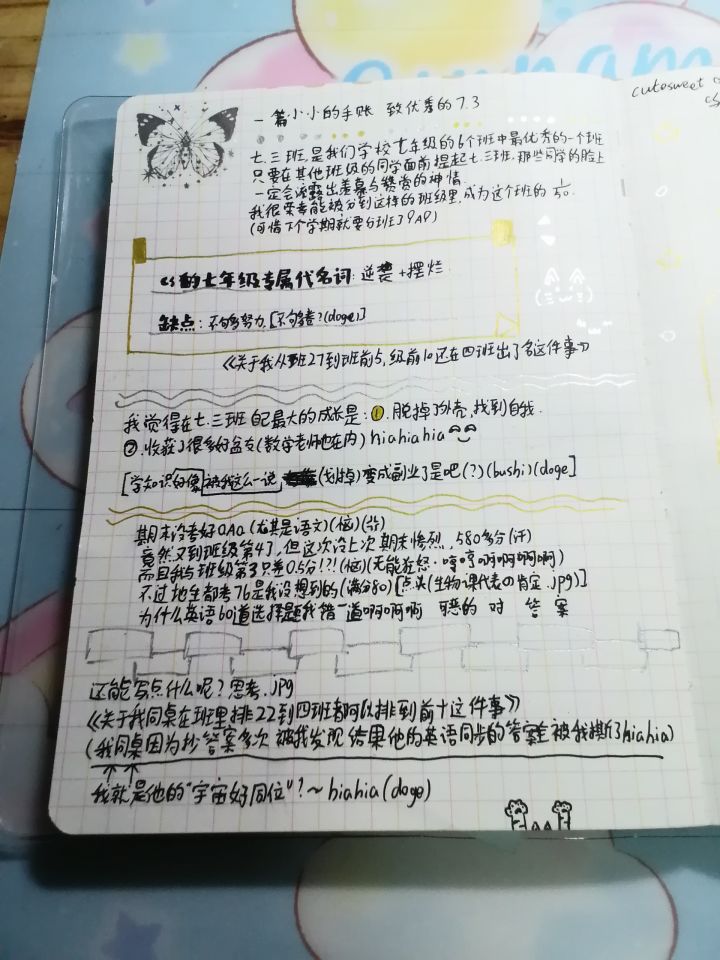 cutesweet
一篇小小的手账 致优秀的7.3
七.三班,是我们学校七年级的6个班中最优秀的一个班
只要在其他班级的同学面前提起七.三班,那些同学的脸上
一定会流露出羡慕与赞赏的神情.
我很荣幸能被分到这样的班级里,成为这个班的1/50.
(可惜下个学期就要分班了QAQ)
的七年级专属代名词:逆袭+摆烂
缺点:不够努力.[不够卷?(doge)]
《关于我从班27到班前5,级前10还在四班出了名这件事》
我觉得在七.三班 自己最大的成长是:①.脱掉了外壳,找到自我.
②.收获了很多好盆友(数学老师也在内) hiahiahia
[学知识好像被我这么一说 (划掉)变成副业了是吧(?)(bushi)(doge]
期末没考好QAQ(尤其是语文)(恼)
竟然又到班级第4了,但这次没上次期末惨烈,580多分(汗)
而且我与班级第3只差0.5分!?!(恼)(无能狂怒·哼哼啊啊啊啊啊)
不过地生都考76是我没想到的(满分80)[点头(生物课代表の肯定.jpg)]
为什么英语60道选择题我错一道啊啊啊啊 可恶的 对 答案
还能写点什么呢?思考.jpg
《关于我同桌在班里排22到四班都可以排到前十这件事》
(我同桌因为抄答案多次被我发现 结果他的英语同步的答案全被我撕了hiahia)
我就是他的"宇宙好同位"?~hiahia(doge)